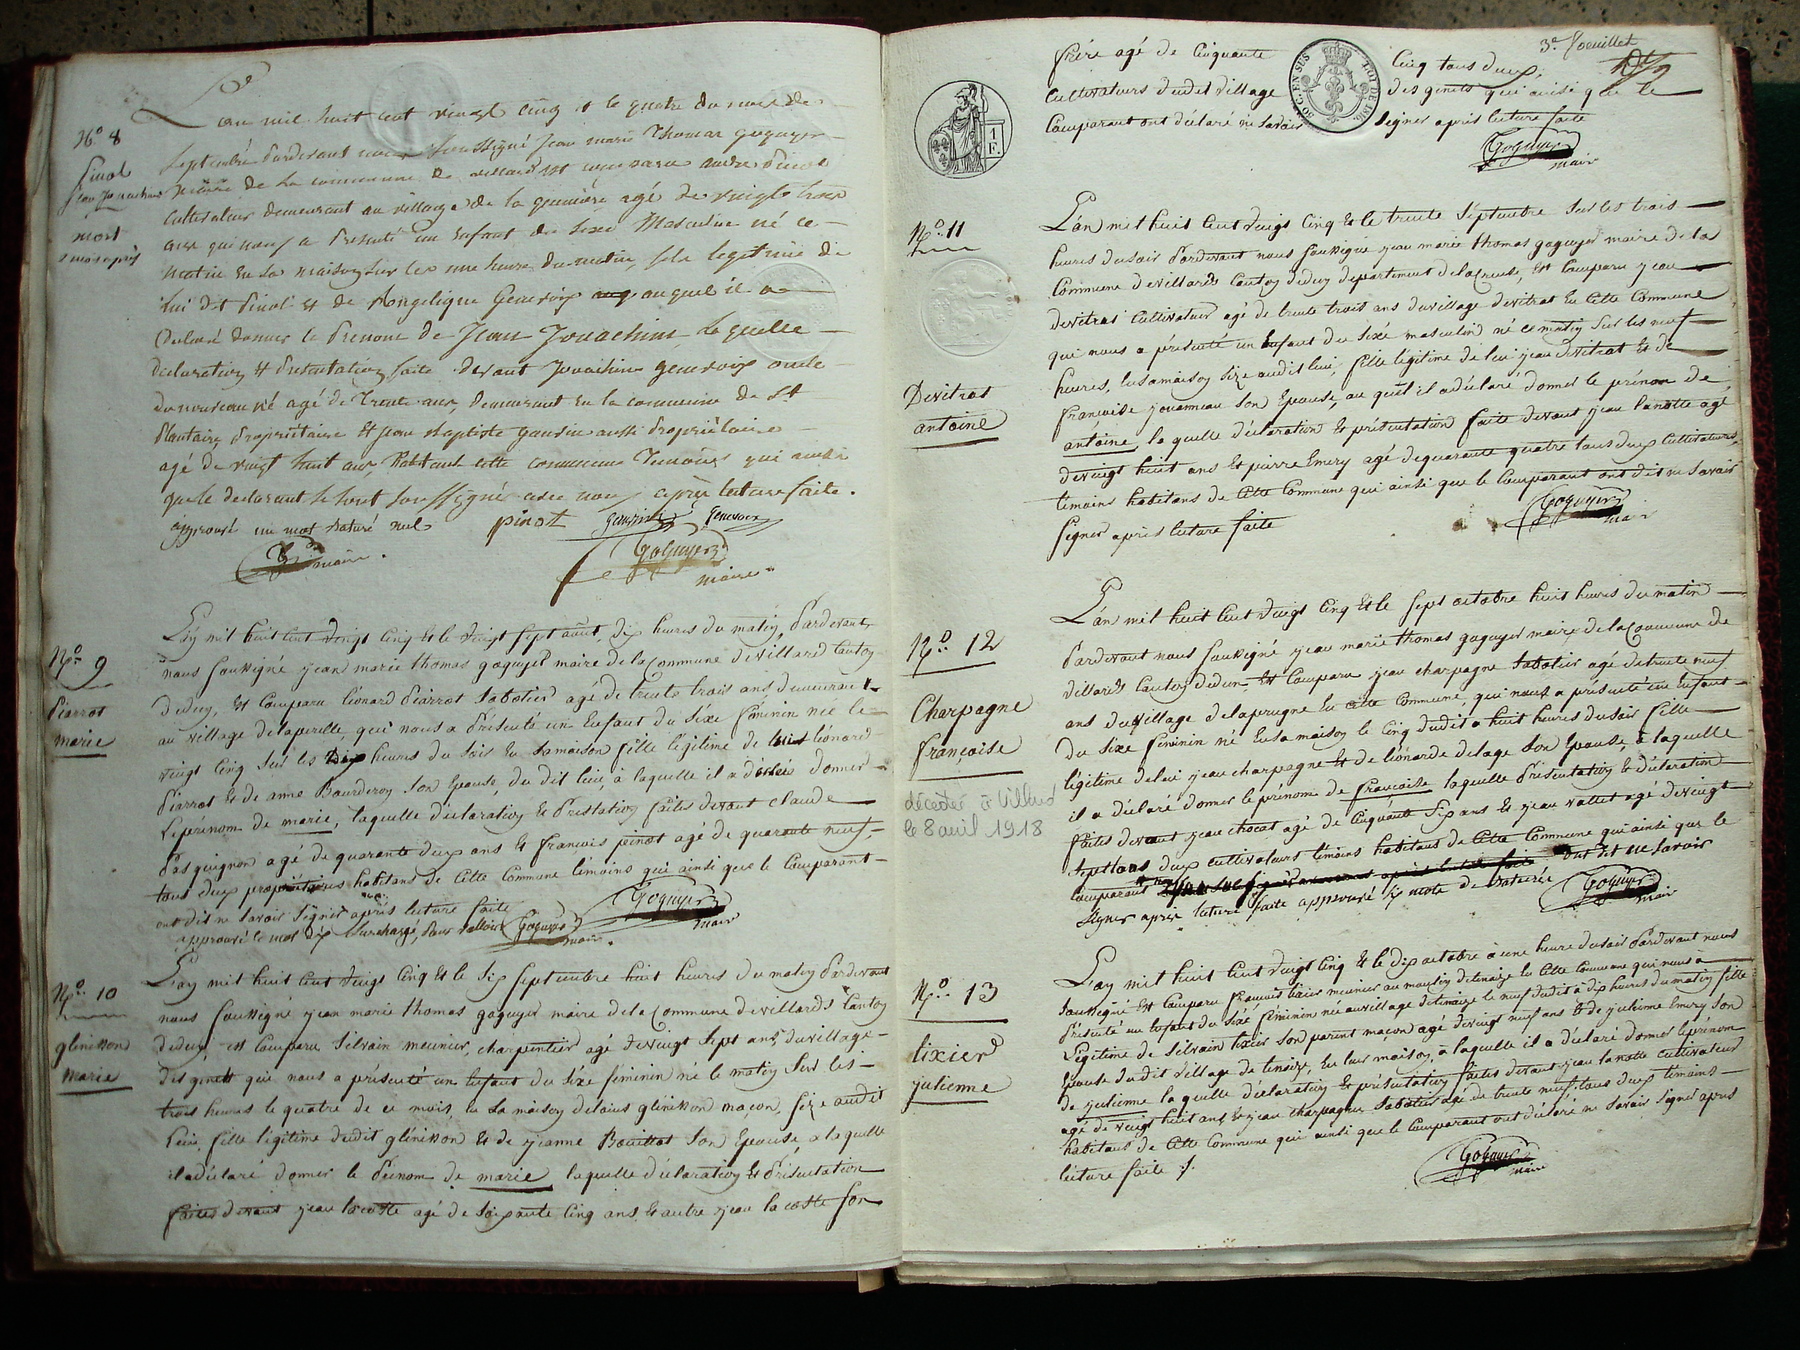 N.o 8
Pinot
Jean Jouachim
mort
L'an mil huit cent vingt cinq et le quatre du mois de
Septembre Pardevant nous soussigné Jean marie Thomas goguyer
maire de la commune de villard est comparu andre Pinot
cultivateur demeurant au village de la age de vingt trois
ans qui nous a Présenté un enfant du sexe Masculin né ce
matin en sa maison sur les une heure du matin, fils legitime de
lui dit Pinot et de Angelique Genevoix auquel il a
declaré donner le Prenom de Jean Jouachim Laquelle
declaration et Presentation faite devant Jouachim genevoix oncle
du nouveau né agé de Trente ans, Demeurant en la commune de St
Plantaire Propriétaire et jean Baptiste gaudin aussi Propriétaire
agé de vingt huit ans habitant cette commune Temoins qui ainsi
que le declarant se sont soussignés avec nous après lecture faite.
approuvé un mot raturé nul pinot gaudin genevoix
maire. Goguyer
maire
N.o 9
Piarrot
marie
L'an mil huit cent vingt cinq et le vingt sept aout, dix heures du matin, Pardevant
nous soussigné jean marie thomas goguyer maire de la commune de villard canton
de dun, est comparu léonard Piarrot sabotier agé de trente trois ans demeurant
au village de laperelle, qui nous a Présenté un Enfant du séxe féminin née le
vingt cinq sur les dix heures du soir en sa maison fille legitime de léonard
Piarrot et de anne Bourderon son épouse, du dit lieu, à laquelle il a déclaré donner
le prénom de marie, laquelle déclaration et Prestation faites devant claude
Pasquignon agé de quarante deux ans et françois peinot agé de quarante neuf
tous deux propriétaires habitans de cette commune témoins qui ainsi que le comparant
ont dit ne savoir signer après lecture faite
approuvé le mot dix surchargé, Goguyer Goguyer
maire. maire
N.o 10
glénisson
marie
L'an mil huit cent vingt cinq et le six septembre huit heures du matin Pardevant
nous soussigné jean marie thomas goguyer maire de la commune de villards canton
de dun, est comparu silvain meunier, charpentier agé de vingt sept ans, du village
des genets qui nous a présenté un enfant du séxe féminin né le matin sur les
trois heures le quatre de ce mois, en la maison de glénisson maçon, size audit
lieu, fille légitime dudit glénisson et de jeanne Bouillot son épouse, a laquelle
il a déclaré donner le Prénom de marie laquelle déclaration et Présentation
faites devant jean lacotte agé de soixante cinq ans et autre jean la cotte son
3e feuillet
frère agé de cinquante cinq tous deux,
cultivateurs dudit village des genets qui ainsi que le
comparant ont déclaré ne savoir signer après lecture faite
Goguyer
maire
1
F.
N.o 11
Devitrat
antoine
L'an mil huit cent vingt cinq et le trente septembre sur les trois
heures du soir Pardevant nous soussigné jean marie thomas goguyer maire de la
commune de villards canton de dun département de la creuse, est comparu jean
devitrat cultivateur agé de trente trois ans du village de vitrat en cette commune
qui nous a présenté un enfant du séxe masculin né ce matin sur les neuf
heures, en sa maison size audit lieu, fille légitime de lui jean devitrat et de
françoise jouanneau son épouse, au quel il a déclaré donner le prénom de
antoine, laquelle déclaration et présentation faite devant jean lanotte agé
de vingt huit ans et pierre Emery agé de quarante quatre tous deux cultivateurs
témoins habitans de cette commune qui ainsi que le comparant ont dit ne savoir
signer après lecture faite Goguyer
maire
N.o 12
Charpagne
françoise
décédée à Villard
le 8 avril 1918
L'an mil huit cent vingt cinq et le sept octobre huit heures du matin
Pardevant nous soussigné jean marie thomas goguyer maire de la commune de
villards canton de dun est comparu jean charpagne sabotier agé de trente neuf
ans du village de laprugne en cette commune, qui nous a présenté un Enfant
du sexe féminin né en sa maison le cinq dudit a huit heures du soir fille
légitime de lui jean charpagne et de léonarde delage son épouse, à laquelle
il a déclaré donner le prénom de françoise laquelle Présentation et déclaration
faites devant jean chocat agé de cinquante six ans et jean vallet agé de vingt
sept tous deux cultivateurs témoins habitans de cette commune qui ainsi que le
comparant ont dit ne savoir
signer après lecture faite approuvé six mots de raturés Goguyer
maire
N.o 13
tixier
julienne
L'an mil huit cent vingt cinq et le dix octobre à une heure du soir Pardevant nous
soussigné est comparu françois tixier meunier au moulin de tenaize en cette commune qui nous a
Présenté un enfant du séxe féminin née au village de tenaize le neuf dudit a dix heures du matin fille
légitime de silvain tixier son parent maçon agé de vingt neuf ans et de julienne Emery son
épouse du dit village de tenaize, en leur maison, à laquelle il a déclaré donner le prénom
de julienne laquelle déclaration et présentation faites devant jean lanotte cultivateur
agé de vingt huit ans et jean charpagne sabotier agé de trente neuf tous deux témoins
habitans de cette commune qui ainsi que le comparant ont déclaré ne savoir signer après
lecture faite ./. Goguyer
maire